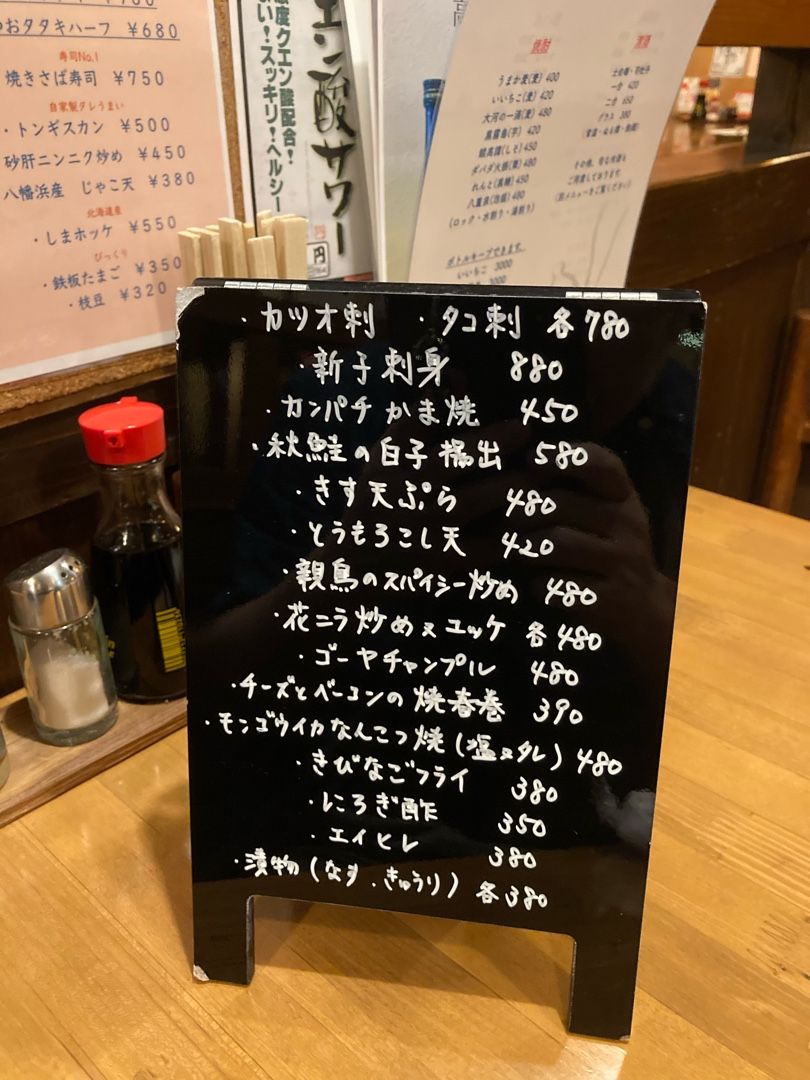 おタタキハーフ ¥680
寿司No.1
焼きさば寿司 ¥750
自家製ダレうまい
・トンギスカン ¥500
砂肝ニンニク炒め ¥450
八幡浜産 じゃこ天 ¥380
北海道産
・しまホッケ ¥550
びっくり
・鉄板たまご ¥350
・枝豆 ¥320
濃度クエン酸配合!
い!スッキリ!ヘルシー
エン酸サワー
円
焼酎
うまか麦(麦) 400
いいちこ(麦) 420
大河の一滴(麦) 480
黒霧島(芋) 420
鍛高譚(しそ) 450
ダバダ火振(栗) 480
れんと(黒糖) 450
八重泉(泡盛) 480
(ロック・水割り・湯割り)
ボトルキープできます。
いいちこ 3000
3000
清酒
一合 420
二合 650
グラス 380
(常温・ぬる燗・熱燗)
その他、旬な地酒も
ご用意しております
(別メニューをご覧ください)
・カツオ刺 ・タコ刺 各780
・新子刺身 880
・カンパチかま焼 450
・秋鮭の白子揚出 580
・きす天ぷら 480
・とうもろこし天 420
・親鳥のスパイシー炒め 480
・花ニラ炒め又ユッケ 各480
・ゴーヤチャンプル 480
・チーズとベーコンの焼春巻 390
・モンゴウイカなんこつ焼(塩又タレ) 480
・きびなごフライ 380
・にろぎ酢 350
・エイヒレ 380
・漬物(なす、きゅうり) 各380